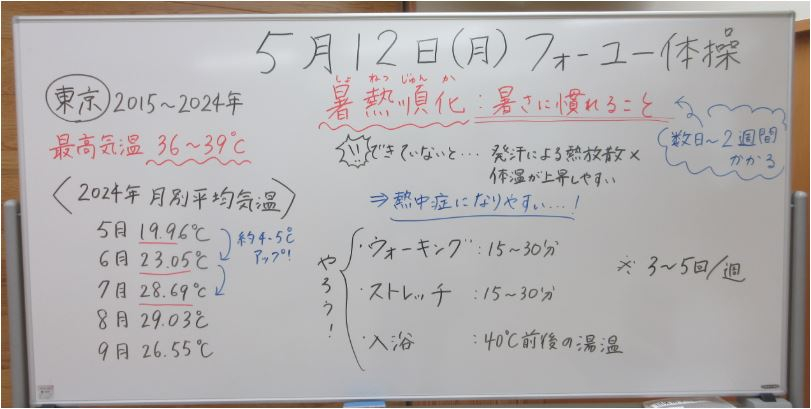 5月12日(月)フォーユー体操
東京 2015～2024年
最高気温 36～39℃
〈2024年 月別平均気温〉
5月 19.96℃
6月 23.05℃
7月 28.69℃
8月 29.03℃
9月 26.55℃
約4-5℃
アップ!
しょ ねつ じゅん か
暑熱順化:暑さに慣れること
数日～2週間
かかる
!! できていないと… 発汗による熱放散×
体温が上昇しやすい
⇒熱中症になりやすい…!
やろう!
・ウォーキング:15～30分
・ストレッチ :15～30分
・入浴 :40℃前後の湯温
※ 3～5回/週